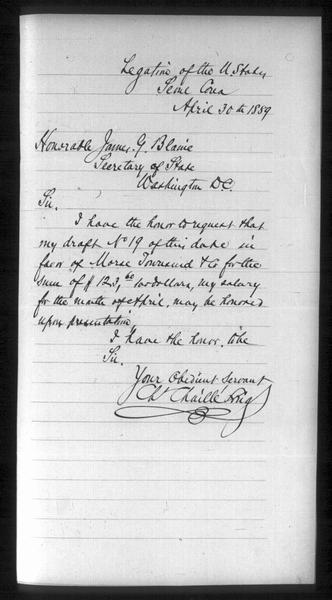 Legation of the U. States
Seoul Corea
April 30th 1889
Honorable James. G. Blaine
Secretary of State
Washington D.C.
Sir.
I have the honor to request that
my draft No 19 of this date in
favor of Morse Townsend & Co for the
sum of $ 123, 60/100 dollars, my salary
for the month of April, may be honored
upon presentation,
I have the honor. to be
Sir.
Your Obedient Servant
Ch. Chaillé Long